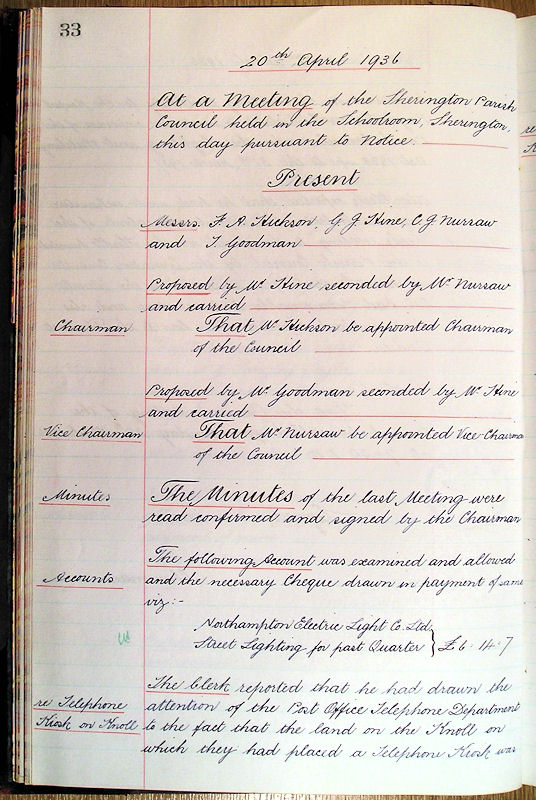 33
20th April 1936
At a Meeting of the Sherington Parish
Council held in the Schoolroom, Sherington,
this day pursuant to Notice.
Present
Messrs. F. A. Hickson, G. J. Hine, C. J. Nursaw
and T. Goodman
Proposed by Mr Hine seconded by Mr Nursaw
and carried
Chairman That Mr Hickson be appointed Chairman
of the Council
Proposed by Mr. Goodman seconded by Mr Hine
and carried
Vice Chairman That Mr Nursaw be appointed Vice-Chairman
of the Council
Minutes The Minutes of the last Meeting were
read confirmed and signed by the Chairman
The following Account was examined and allowed
Accounts and the necessary Cheque drawn in payment of same
viz:-
Northampton Electric Light Co. Ltd.
Street Lighting for past Quarter } £6.14.7
The Clerk reported that he had drawn the
re Telephone attention of the Post Office Telephone Department
Kiosk on Knoll to the fact that the land on the Knoll on
which they had placed a Telephone Kiosk was